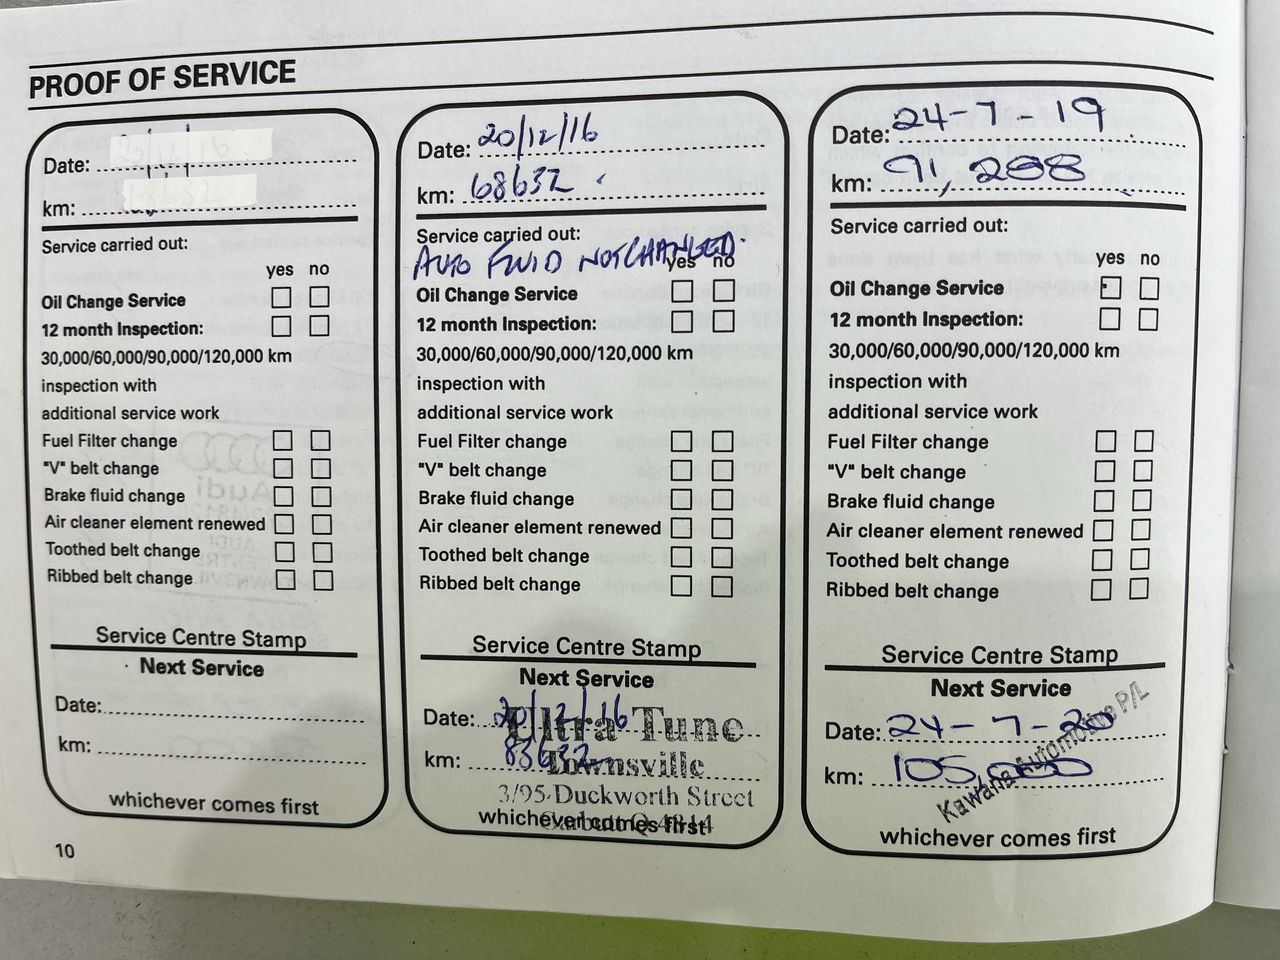 PROOF OF SERVICE
Date:
km:
Service carried out:
yes no
Oil Change Service
12 month Inspection:
30,000/60,000/90,000/120,000 km
inspection with
additional service work
Fuel Filter change
"V" belt change
Brake fluid change
Air cleaner element renewed
Toothed belt change
Ribbed belt change
Service Centre Stamp
Next Service
Date:
km:
whichever comes first
10
Date: 20/12/16
km: 68632
Service carried out:
AUTO FLUID NOT CHANGED.
yes no
Oil Change Service
12 month Inspection:
30,000/60,000/90,000/120,000 km
inspection with
additional service work
Fuel Filter change
"V" belt change
Brake fluid change
Air cleaner element renewed
Toothed belt change
Ribbed belt change
Service Centre Stamp
Next Service
Date: 20/12/16
Ultra Tune
km: 83632
Townsville
3/95 Duckworth Street
whichever comes first
Garbutt Q 4814
Date: 24-7-19
km: 91,288
Service carried out:
yes no
Oil Change Service
12 month Inspection:
30,000/60,000/90,000/120,000 km
inspection with
additional service work
Fuel Filter change
"V" belt change
Brake fluid change
Air cleaner element renewed
Toothed belt change
Ribbed belt change
Service Centre Stamp
Next Service
Date: 24-7-20
km: 105,000
Kawana Automotive P/L
whichever comes first